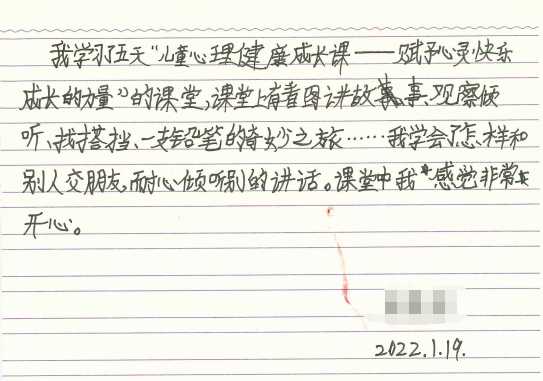 我学习了五天“儿童心理健康成长课——赋予心灵快乐
成长的力量”的课堂,课堂上有看图讲故事、观察倾
听、找搭挡、一支铅笔的奇妙之旅……我学会了怎样和
别人交朋友,耐心倾听别的讲话。课堂中我感觉非常
开心。
2022.1.19.